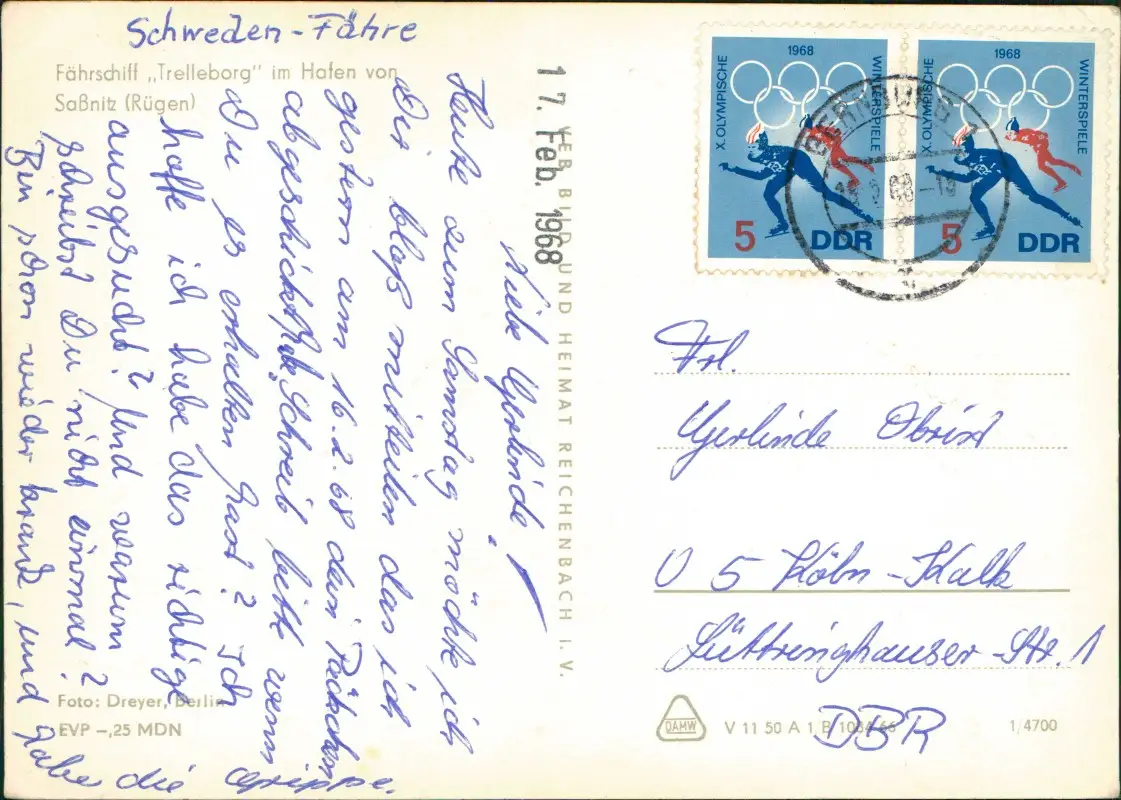 Schweden-Fähre
Fährschiff „Trelleborg" im Hafen von
Saßnitz (Rügen)
17. Feb. 1968
Liebe Gerlinde!
Heute zum Samstag möchte ich
Dir bloß mitteilen das ich
gestern am 16.2.68 dein Päckchen
abgeschickt habe. Schreib bitte wenn
Du es erhalten hast? Ich
hoffe ich habe das richtige
ausgesucht? Und warum
schreibst Du nicht einmal?
Bin schon wieder krank, und habe
die Grippe.
Foto: Dreyer, Berlin
EVP –,25 MDN
VEB BILD UND HEIMAT REICHENBACH I. V.
1968
X. OLYMPISCHE
WINTERSPIELE
5 DDR
1968
X. OLYMPISCHE
WINTERSPIELE
5 DDR
BERNBURG
Frl.
Gerlinde Obrist
5 Köln-Kalk
Lüttringhauser-Str. 1
DBR
DAMW
V 11 50 A 1 B
1/4700